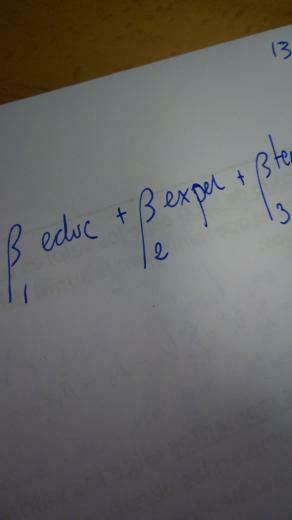 13
β₁ educ + β₂ exper + β₃ te